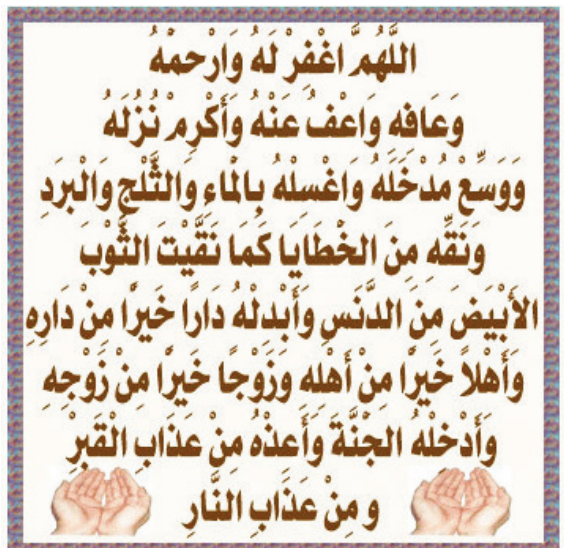 اللَّهُمَّ اغْفِرْ لَهُ وَارْحَمْهُ
وَعَافِهِ وَاعْفُ عَنْهُ وَأَكْرِمْ نُزُلَهُ
وَوَسِّعْ مُدْخَلَهُ وَاغْسِلْهُ بِالْمَاءِ وَالثَّلْجِ وَالْبَرَدِ
وَنَقِّهِ مِنَ الخْطَايَا كَمَا نَقَّيْتَ الثَّوْبَ
الأَبْيَضَ مَنَ الدَّنَسِ وَأَبْدِلْهُ دَارًا خَيرًا مِنْ دَارِهِ
وَأَهْلاً خَيرًا مِنْ أَهْلِهِ وَزَوْجًا خَيرًا مِنْ زَوْجِهِ
وَأَدْخِلْهُ الجَنَّةَ وَأَعِذْهُ مِنْ عَذَابِ الْقَبرْ
و مِنْ عَذَابِ النَّارِ